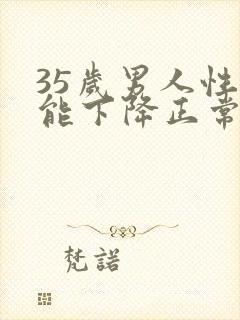 35歲男人性
能下降正常
梵諾